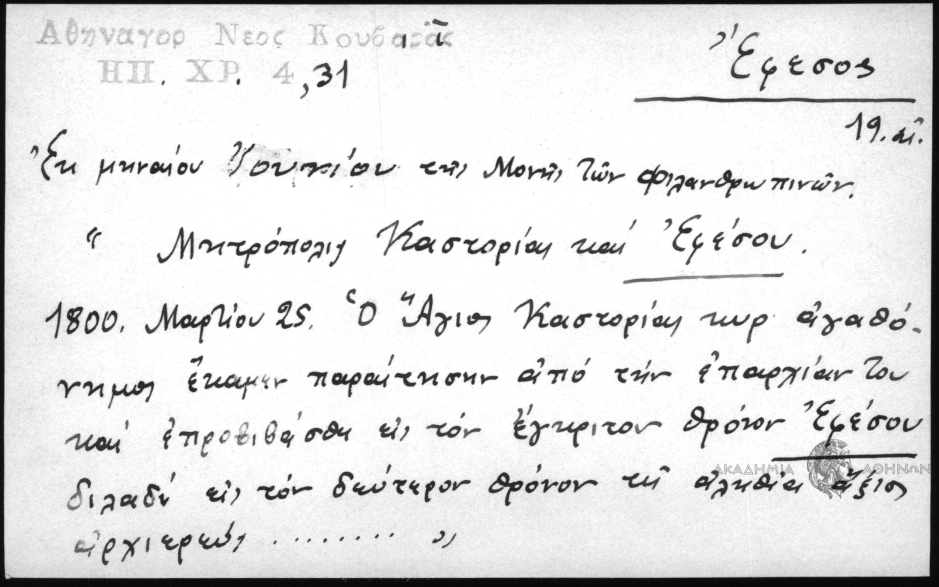 Αθηναγορ Νεος Κουβαρᾶς ιῖ
ΗΠ. ΧΡ. 4,31
Ἔφεσος
19. αἰ.
Ἐκ μηναίου Ἰουνίου τῆς Μονῆς τῶν Φιλανθρωπινῶν.
“ Μητρόπολις Καστορίας καί Ἐφέσου.
1800. Μαρτίου 25. Ὁ Ἅγιος Καστορίας κυρ ἀγαθό-
νημος ἔκαμεν παραίτησην ἀπό τήν ἐπαρχίαν του
καί ἐπροβιβάσθη εἰς τόν ἔγκριτον θρόνον Ἐφέσου
διλαδή εἰς τόν δεύτερον θρόνον τῆ ἀληθίᾳ ἄξιος
ἀρχιερεύς ........ „
ΑΚΑΔΗΜΙΑ ΑΘΗΝΩΝ